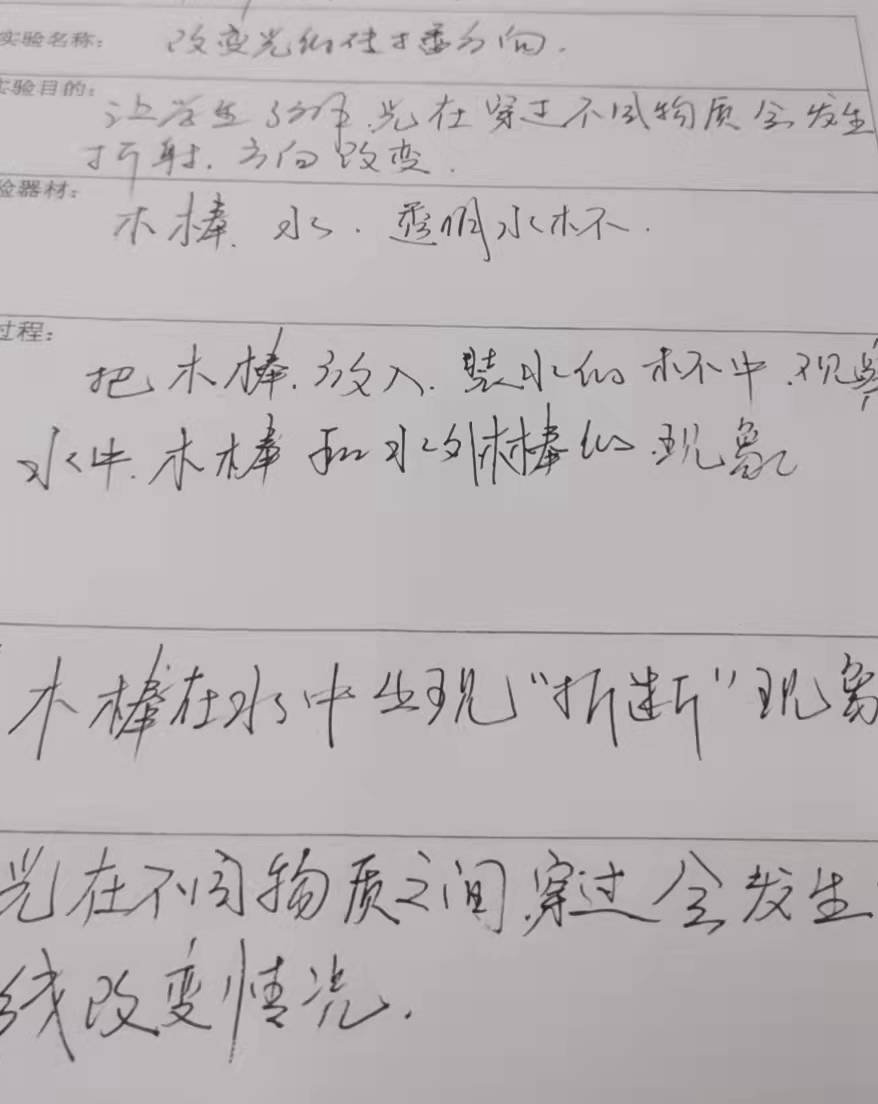 实验名称： 改变光的传播方向．
实验目的： 让学生了解光在穿过不同物质会发生
折射．方向改变．
验器材： 木棒．水．透明水杯．
过程：
把木棒．放入．装水的杯中．观察
水中．木棒和水外木棒的．现象
木棒在水中出现“折断”现象
光在不同物质之间．穿过会发生
线改变情况．